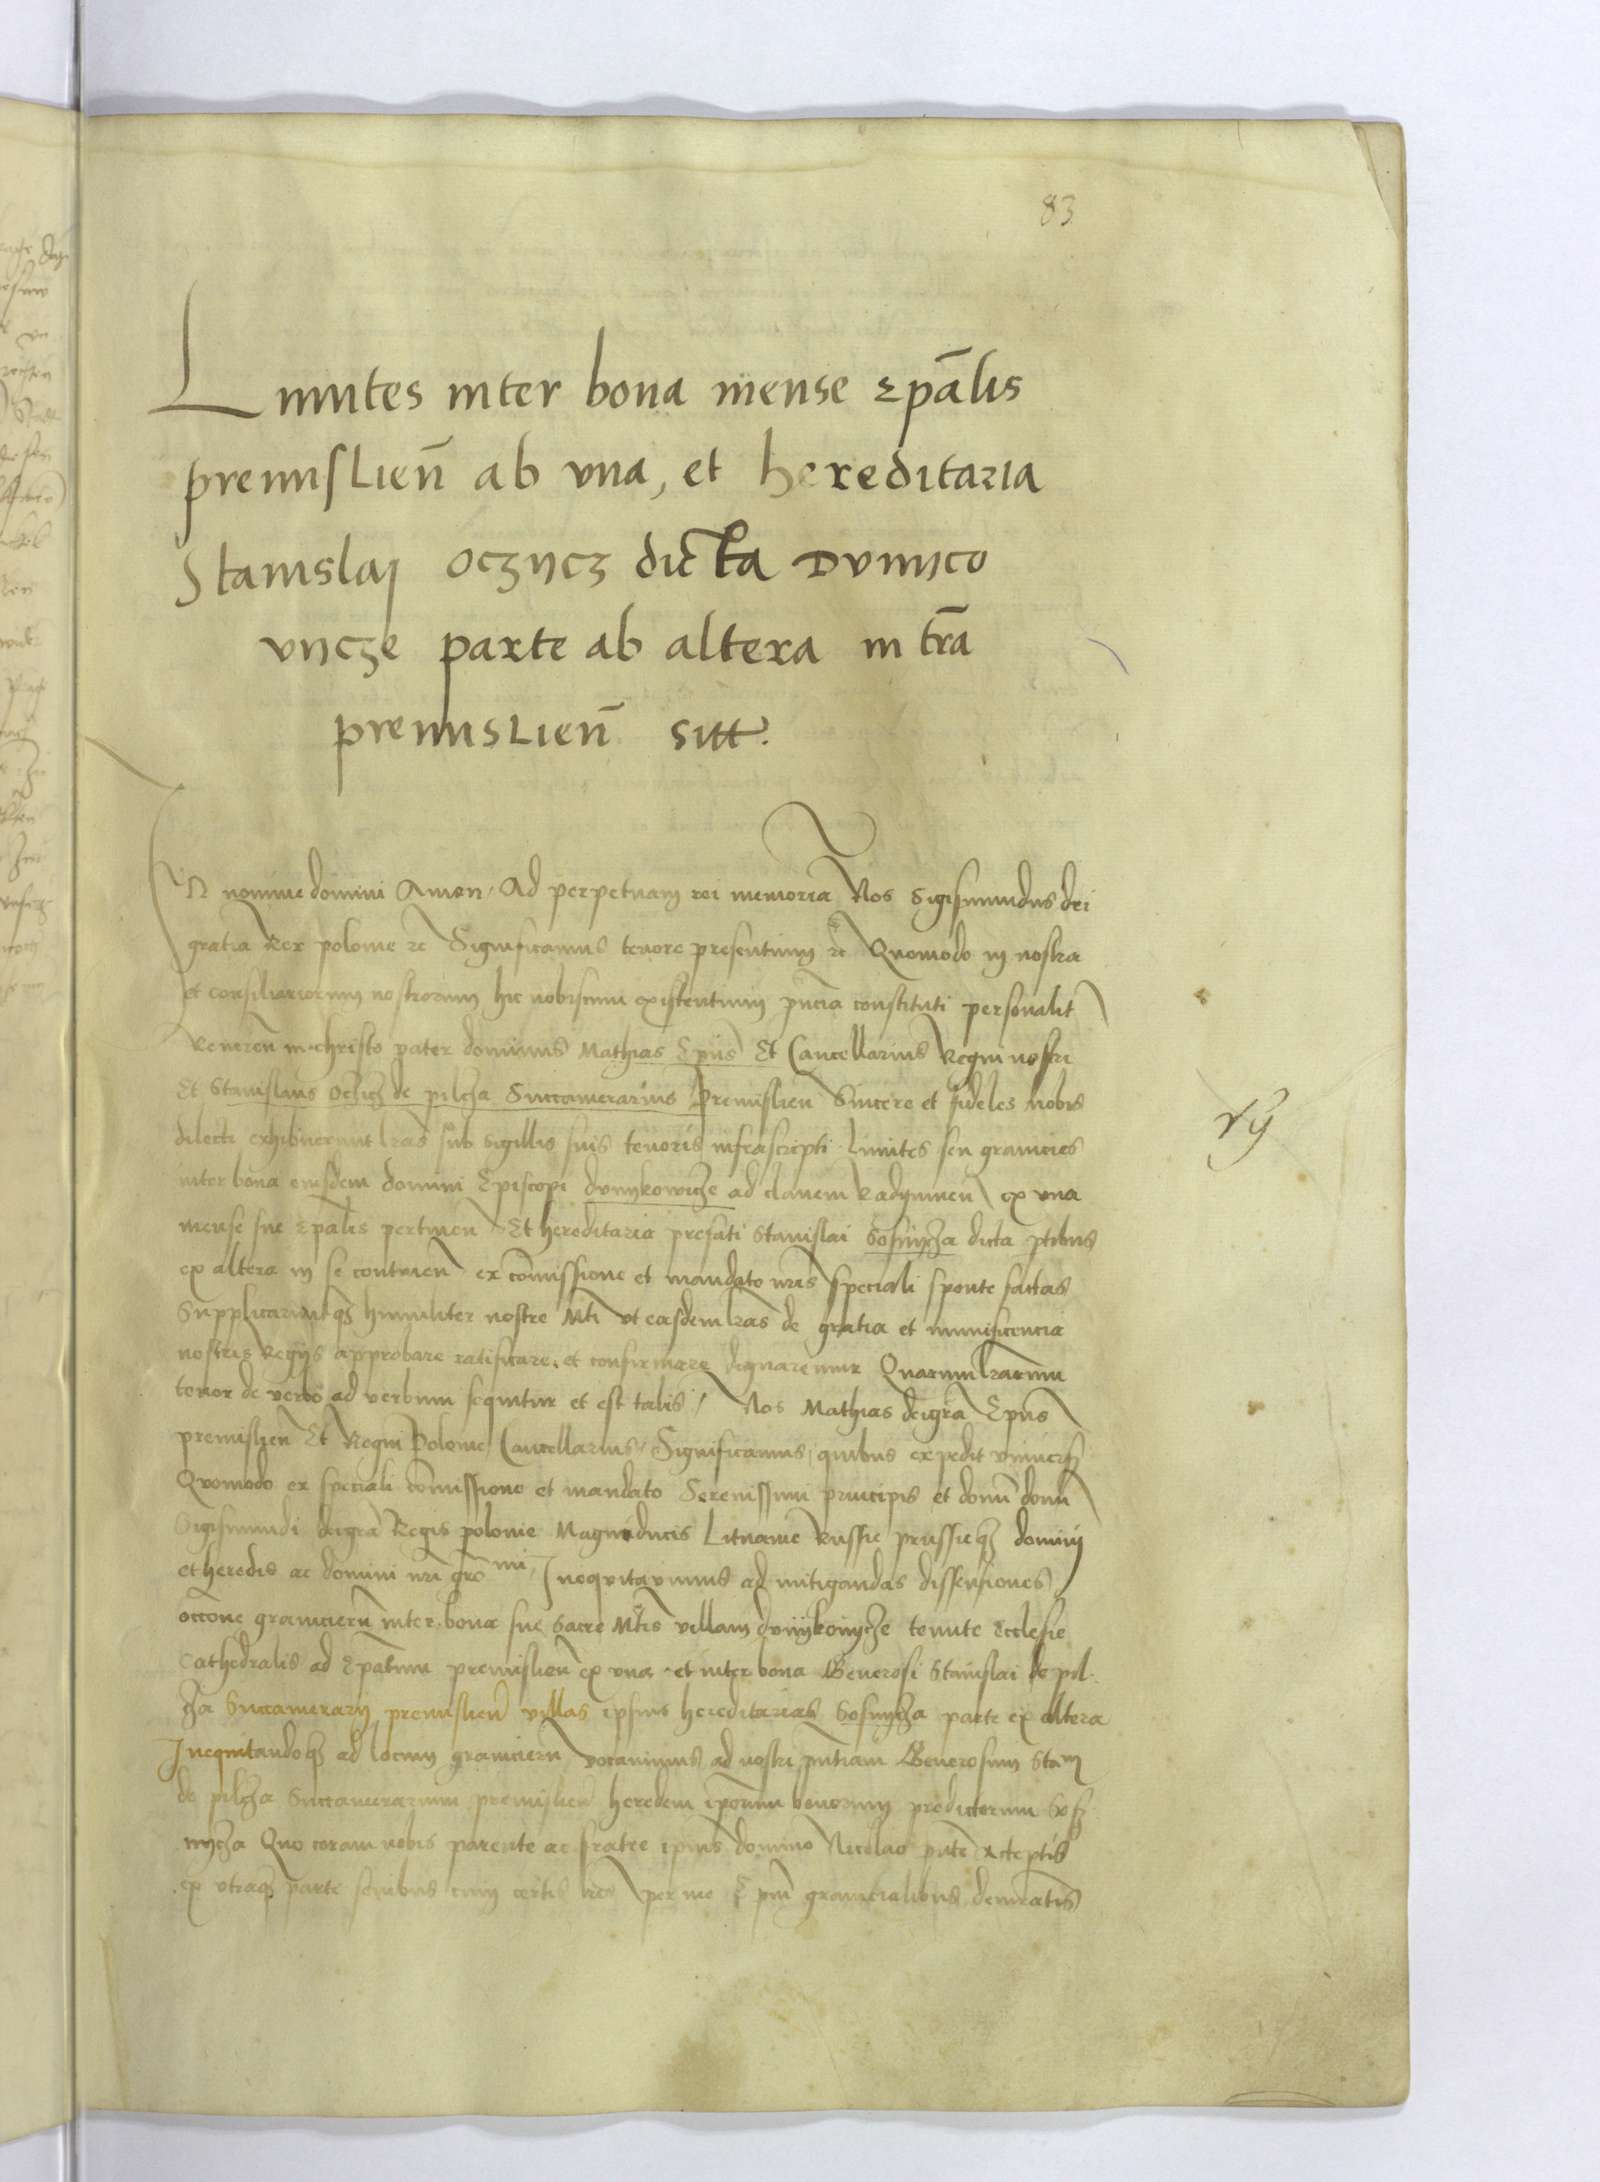 83
Limites inter bona mense Ep̄alis
premislien̄ ab vna, et hereditaria
Stanislaj oczycz dicta Dvnyco
vycze parte ab altera in tr̄a
premislien̄ sitt.
In nomine domini Amen. Ad perpetuam rei memoriā Nos Sigismundus dei
gratia Rex polonie ꝛc Significamus tenore presentium ꝛc Quomodo in nostra
et consiliariorum nostrorum hic nobiscum existentium pn̄cia constituti personalit
Reueren̄ in christo pater dominus Mathias Ep̄us Et Cancellarius Regni nostri
Et Stanislaus oczycz de pilcza Succamerarius Premislien̄ Sincere et fideles nobis
dilecti exhibuerunt lr̄as sub sigillis suis tenoris infrascripti limites seu granicies
inter bona eiusdem domini Episcopi dvnykowicze ad clauem Radymnen̄ ex vna
mense sue Ep̄alis pertinen̄ Et hereditaria prefati Stanislai Sosnycza dicta ptibus
ex altera in se continen̄ ex com̄issione et mandato nr̄is speciali sponte factas
Supplicaruntqʒ humiliter nostre Mti vt easdem lr̄as de gratia et munificencia
nostris Regijs approbare ratificare, et confirmare dignaremur Quarum lr̄arum
tenor de verbo ad verbum sequitur et est talis / Nos Mathias dei gr̄a Ep̄us
premislien̄ Et Regni Polonie Cancellarius, Significamus, quibus expedit vniuersʒ
Quomodo ex speciali com̄issione et mandato Serenissimi principis et domn̄ domn̄
Sigismundi dei gr̄a Regis polonie Magni ducis Lituanie Russie prussieqʒ dominij
et heredis ac domini nr̄i gr̄o mi, Inequitauimus ad mitigandas dissensiones
occone granicierū inter bona sue Sacre Mtis villam dvnykowycze tenute Ecclesie
Cathedralis ad Ep̄atum premislien̄ ex vna et inter bona Generosi Stanislai de pil
cza Succamerarij premislien̄ villas ipsius hereditarias Sosnycza parte ex altera
Inequitandoqʒ ad locum granicierū vocauimus ad nostri pn̄tiam Generosum Stanj
de pilcza Succamerarium premislien̄ heredem ipsorum bonorum predictorum Sosz
nycza Quo coram nobis parente ac fratre ipius domino Nicolao pn̄te Acceptis
ex vtraqʒ parte senibus cum certis per me Ep̄m granicialibus